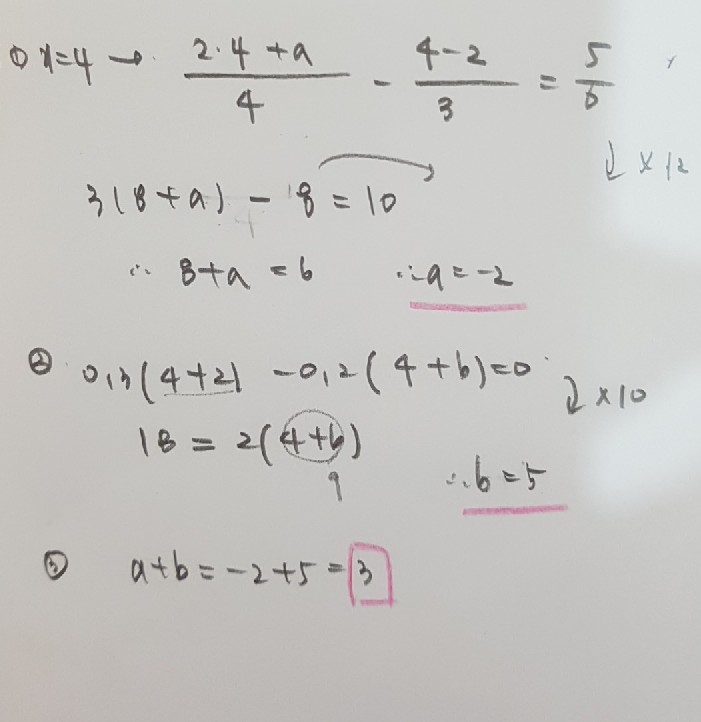 ① x=4 → (2·4+a)/4 - (4-2)/3 = 5/6
↓ ×12
3(8+a) - 8 = 10
∴ 8+a = 6 ∴ a = -2
② 0,3(4+2) -0,2(4+b)=0
↓ ×10
18 = 2(4+b)
9
∴ b = 5
③ a+b = -2+5 = 3